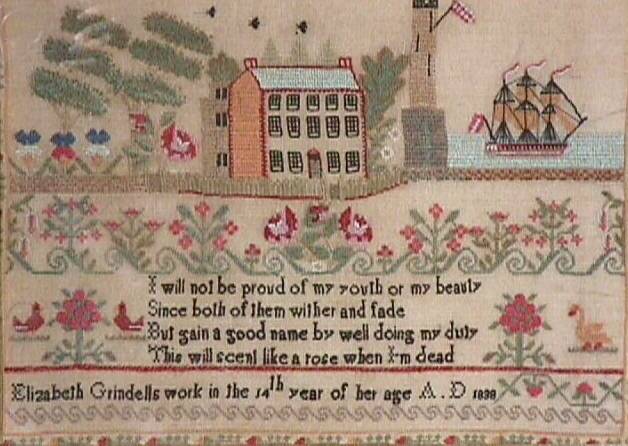 I will not be proud of my youth or my beauty
Since both of them wither and fade
But gain a good name by well doing my duty
This will scent like a rose when I-m dead
Elizabeth Grindells work in the 14th year of her age A.D 1838